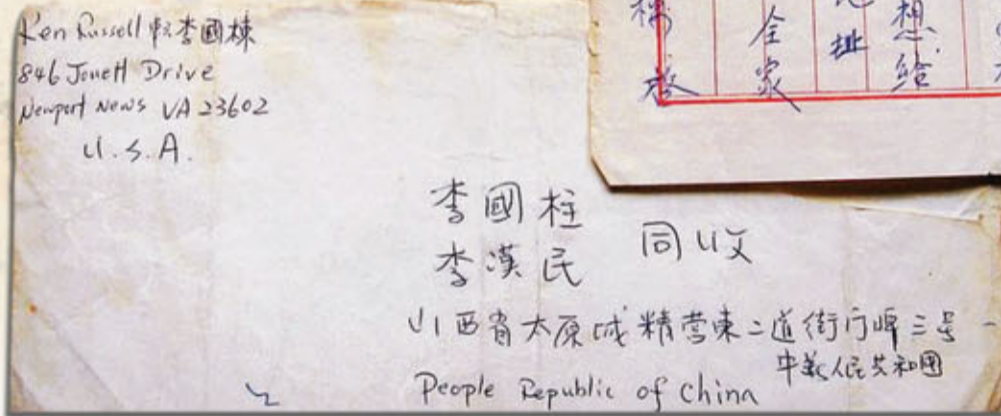 Ken Russell 転李國棟
846 Jouett Drive
Newport News VA 23602
U.S.A.
想給
地址
全家
李國柱
李漢民
同收
山西省太原城精营東二道街門牌三号
中華人民共和國
People Republic of China